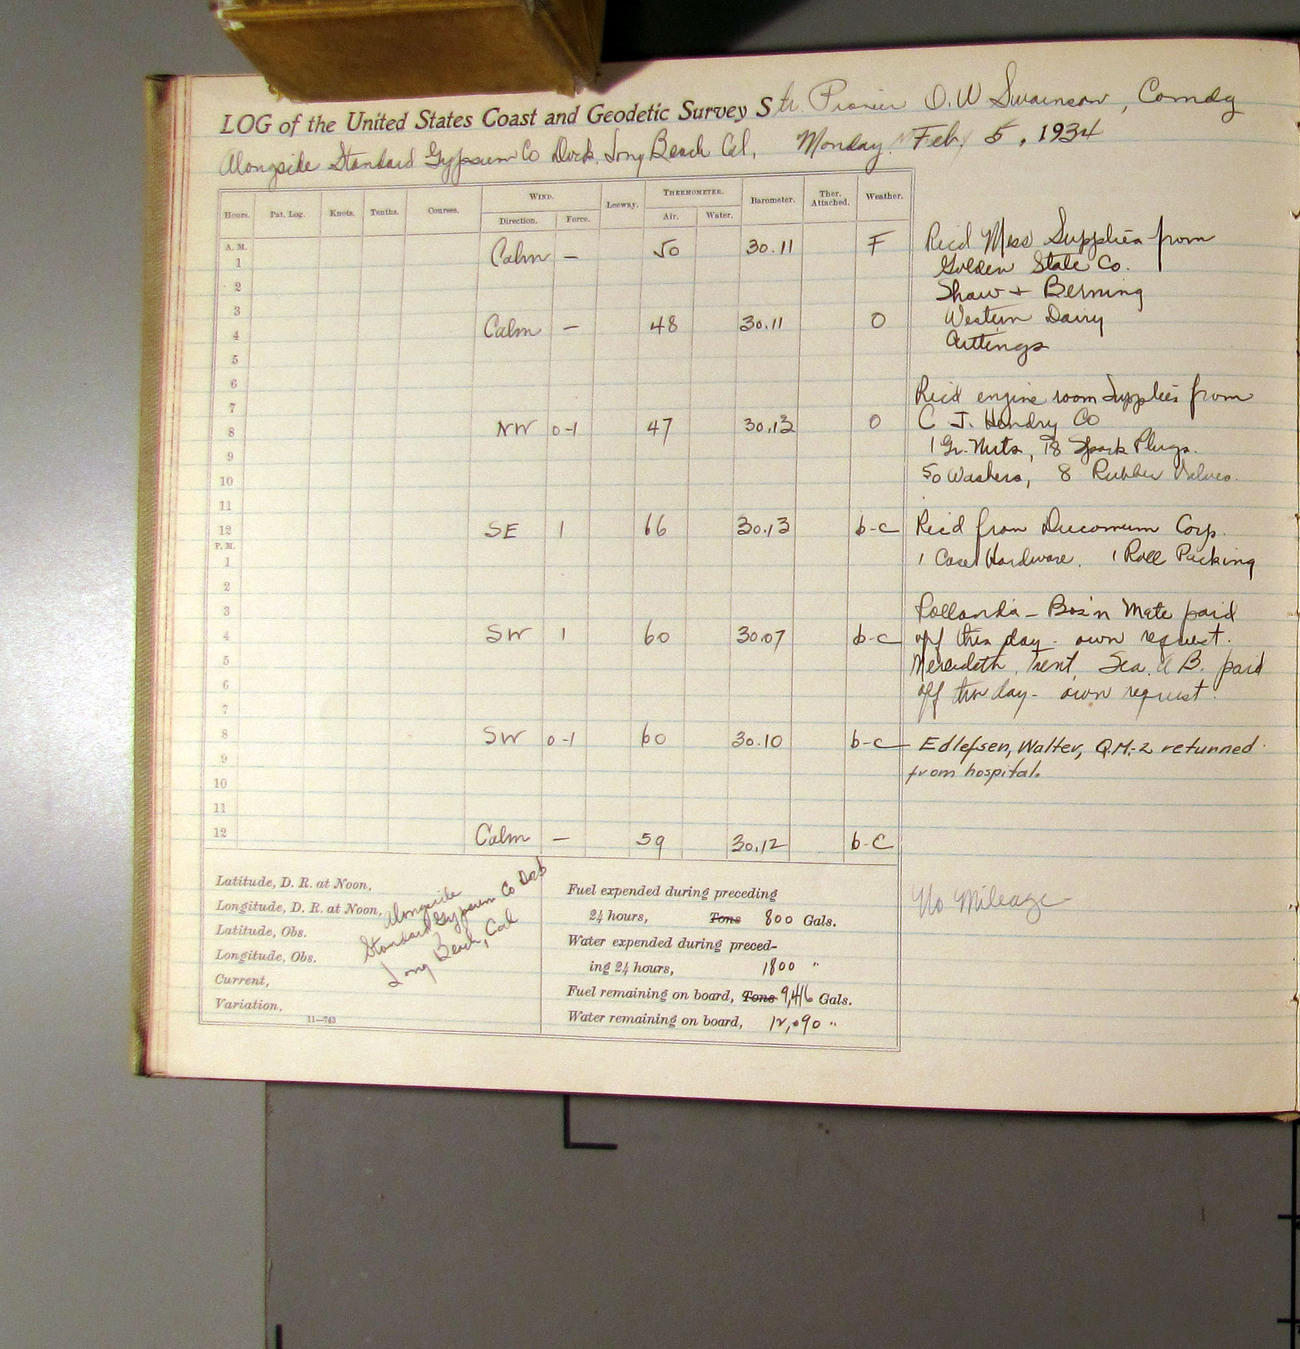 LOG of the United States Coast and Geodetic Survey Str. Pioneer O. W Swainson, Comdg
Alongside Standard Gypsum Co Dock, Long Beach Cal, Monday. Feb. 5, 1934
Hours. Pat. Log. Knots. Tenths. Courses. WIND. Direction. Force. Leeway. THERMOMETER. Air. Water. Barometer. Ther. Attached. Weather.
A. M.
1 Calm — 50 30.11 F Rec'd Mess Supplies from
Golden State Co.
2 Shaw + Berning
3
4 Calm — 48 30.11 O Western Dairy
5
6
7 Rec'd engine room Supplies from
8 NW 0-1 47 30.12 O C J. Hendry Co
9 1 Gr. Nuts, 18 Spark Plugs.
10 50 Washers, 8 Rubber Valves.
11
12 SE 1 66 30.13 b-c Rec'd from Ducommun Corp.
P. M.
1 1 Case Hardware. 1 Roll Packing
2
3 – Bos'n Mate paid
4 SW 1 60 30.07 b-c off this day - own request.
5 Meredeth, Trent, Sea. A B. paid
6 off this day - own request.
7
8 SW 0-1 60 30.10 b-c Edlefsen, Walter, Q.M.-2 returned
9 from hospital.
10
11
12 Calm — 59 30.12 b-c
Latitude, D. R. at Noon,
Longitude, D. R. at Noon,
Latitude, Obs.
Longitude, Obs.
Current,
Variation,
11—743
Alongside
Standard Gypsum Co Dock
Long Beach, Cal
Fuel expended during preceding
24 hours, Tons 800 Gals.
Water expended during preced-
ing 24 hours, 1800 "
Fuel remaining on board, Tons 9,416 Gals.
Water remaining on board, 12,090 "
No Mileage